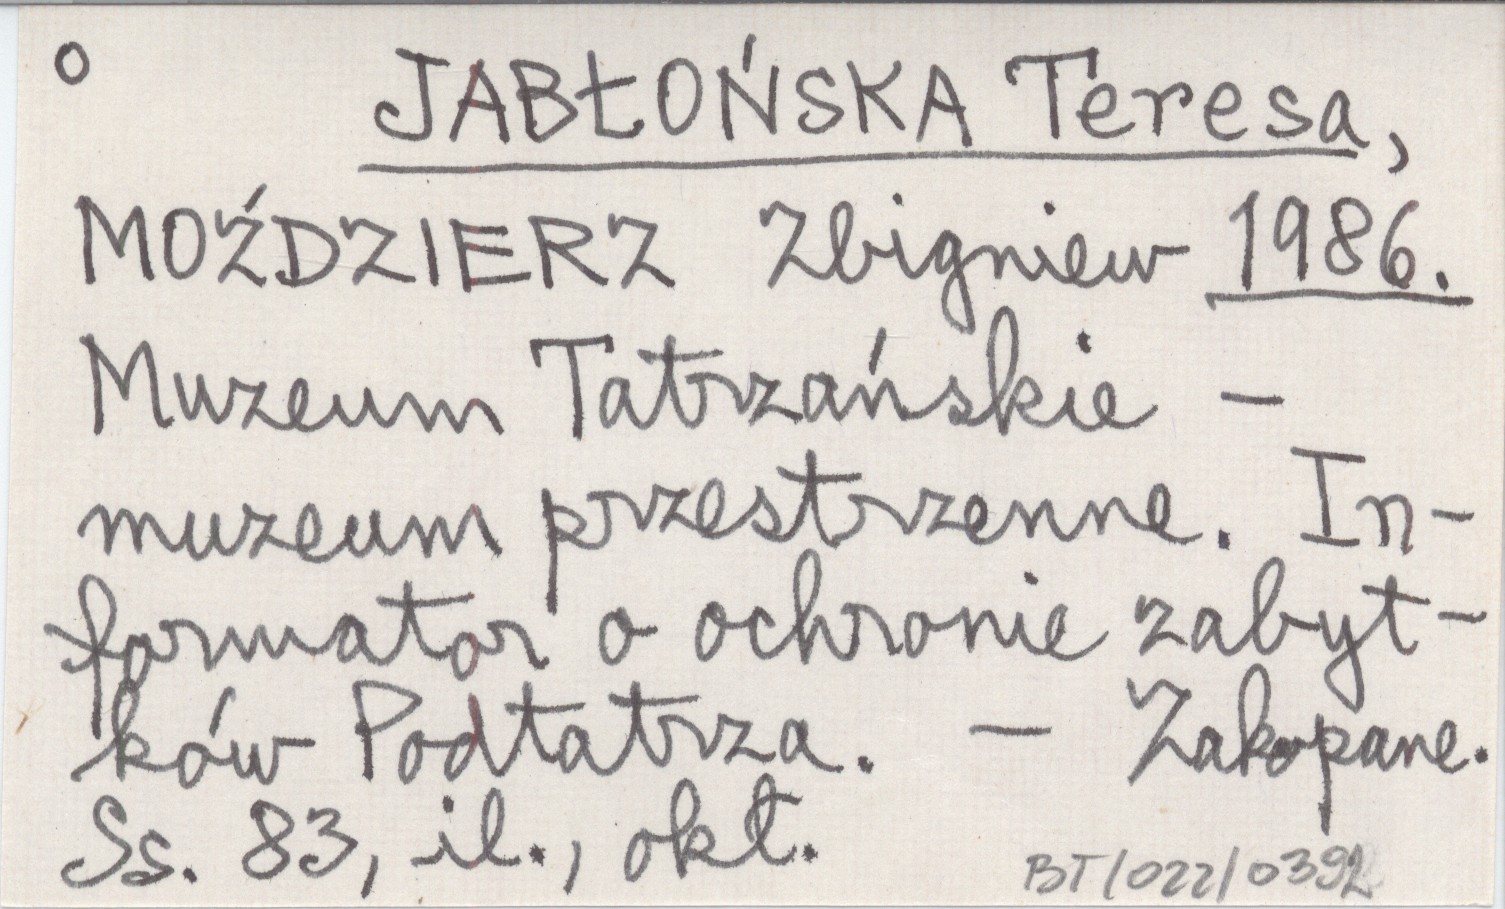 o JABŁOŃSKA Teresa,
MOŹDZIERZ Zbigniew 1986.
Muzeum Tatrzańskie –
muzeum przestrzenne. In-
formator o ochronie zabyt-
ków Podtatrza. – Zakopane.
Ss. 83, il., okł.
BT/022/0392